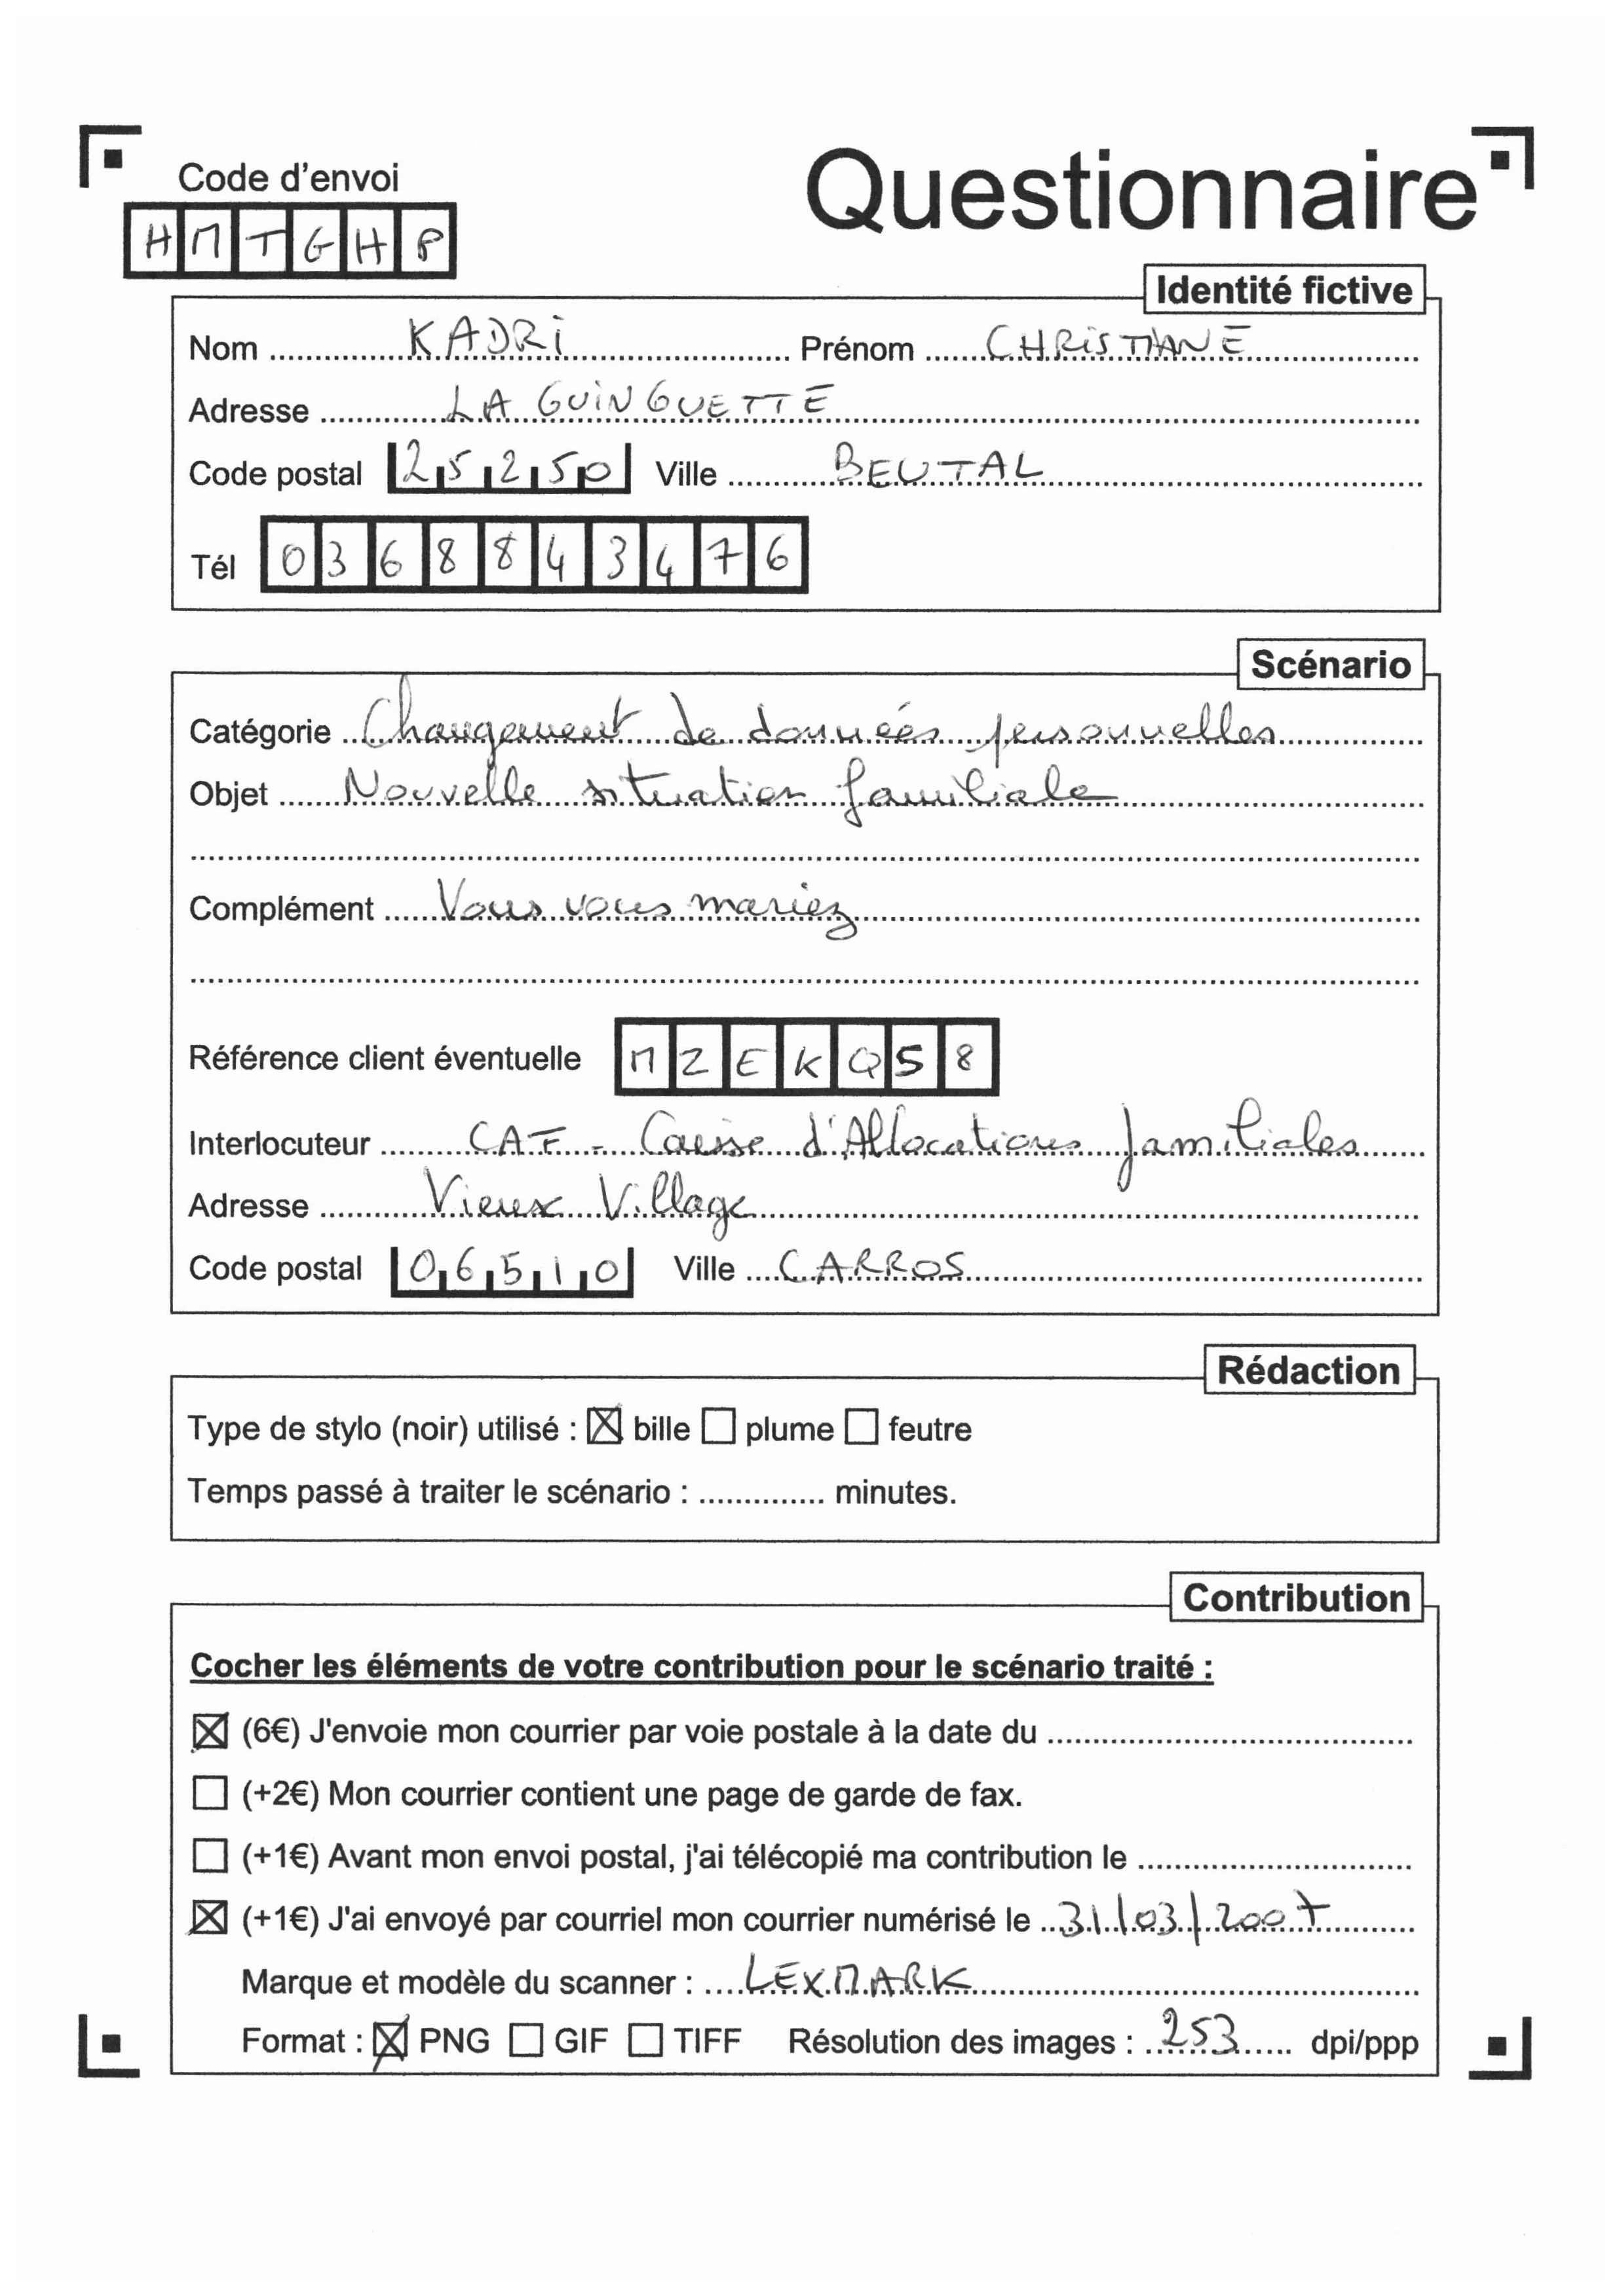 Code d'envoi
Questionnaire
HMTGHP
Identité fictive
Nom KADRI Prénom CHRISTIANE
Adresse LA GUINGUETTE
Code postal 25250 Ville BEUTAL
Tél 0368843476
Scénario
Catégorie Changement de données personnelles
Objet Nouvelle situation familiale
Complément Vous vous mariez
Référence client éventuelle MZEKQ58
Interlocuteur CAF - Caisse d'Allocations familiales
Adresse Vieux Village
Code postal 06510 Ville CARROS
Rédaction
Type de stylo (noir) utilisé : ☒ bille ☐ plume ☐ feutre
Temps passé à traiter le scénario : .............. minutes.
Contribution
Cocher les éléments de votre contribution pour le scénario traité :
☒ (6€) J'envoie mon courrier par voie postale à la date du
☐ (+2€) Mon courrier contient une page de garde de fax.
☐ (+1€) Avant mon envoi postal, j'ai télécopié ma contribution le
☒ (+1€) J'ai envoyé par courriel mon courrier numérisé le 31/03/2007
Marque et modèle du scanner : LEXMARK
Format : ☒ PNG ☐ GIF ☐ TIFF Résolution des images : 253 dpi/ppp